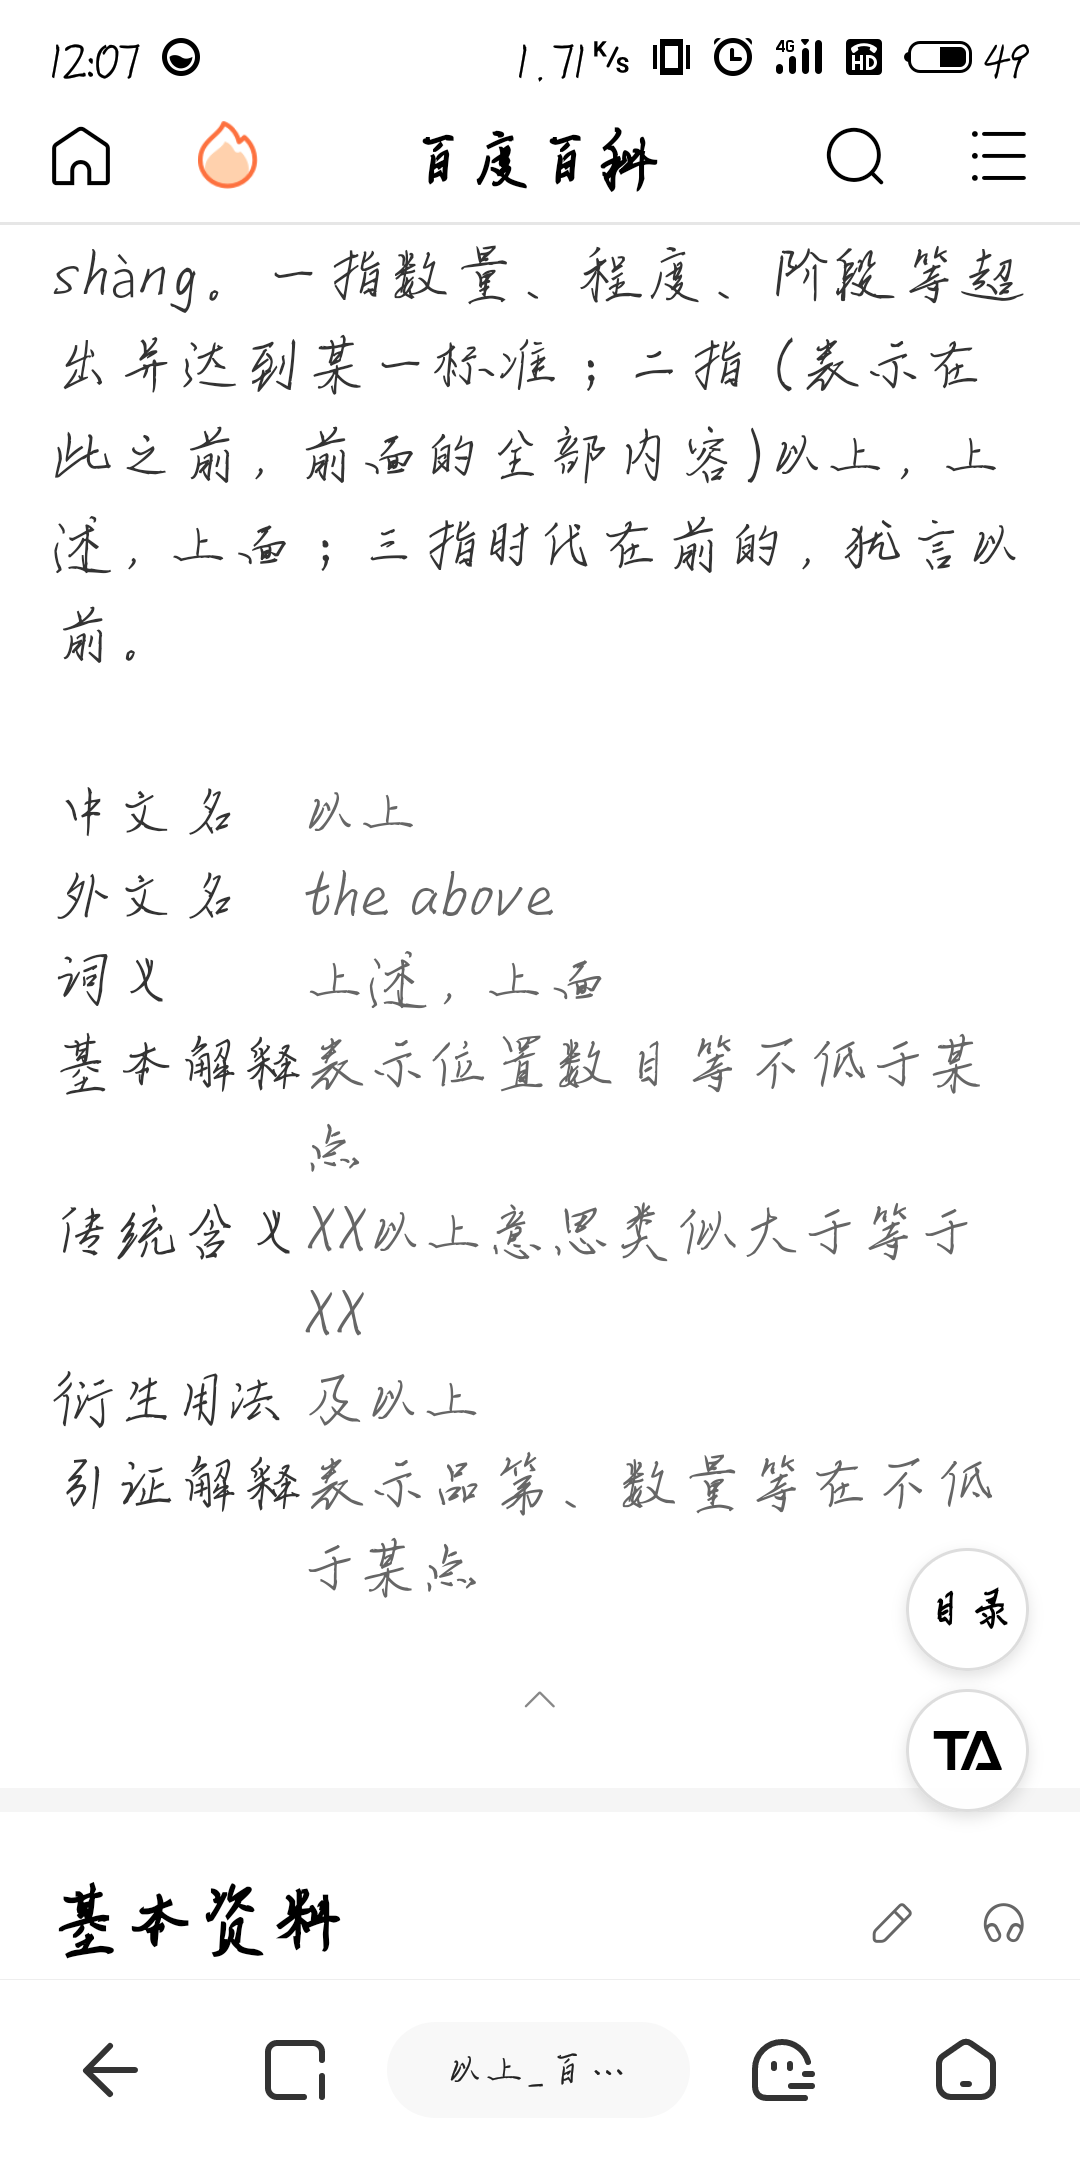 12:07 1.71 K/s 4G HD 49
百度百科
shàng。一指数量、程度、阶段等超
出并达到某一标准；二指(表示在
此之前，前面的全部内容)以上，上
述，上面；三指时代在前的，犹言以
前。
中文名 以上
外文名 the above
词义 上述，上面
基本解释 表示位置数目等不低于某
点
传统含义 XX以上意思类似大于等于
XX
衍生用法 及以上
引证解释 表示品第、数量等在不低
于某点
目录
TA
基本资料
以上_百…